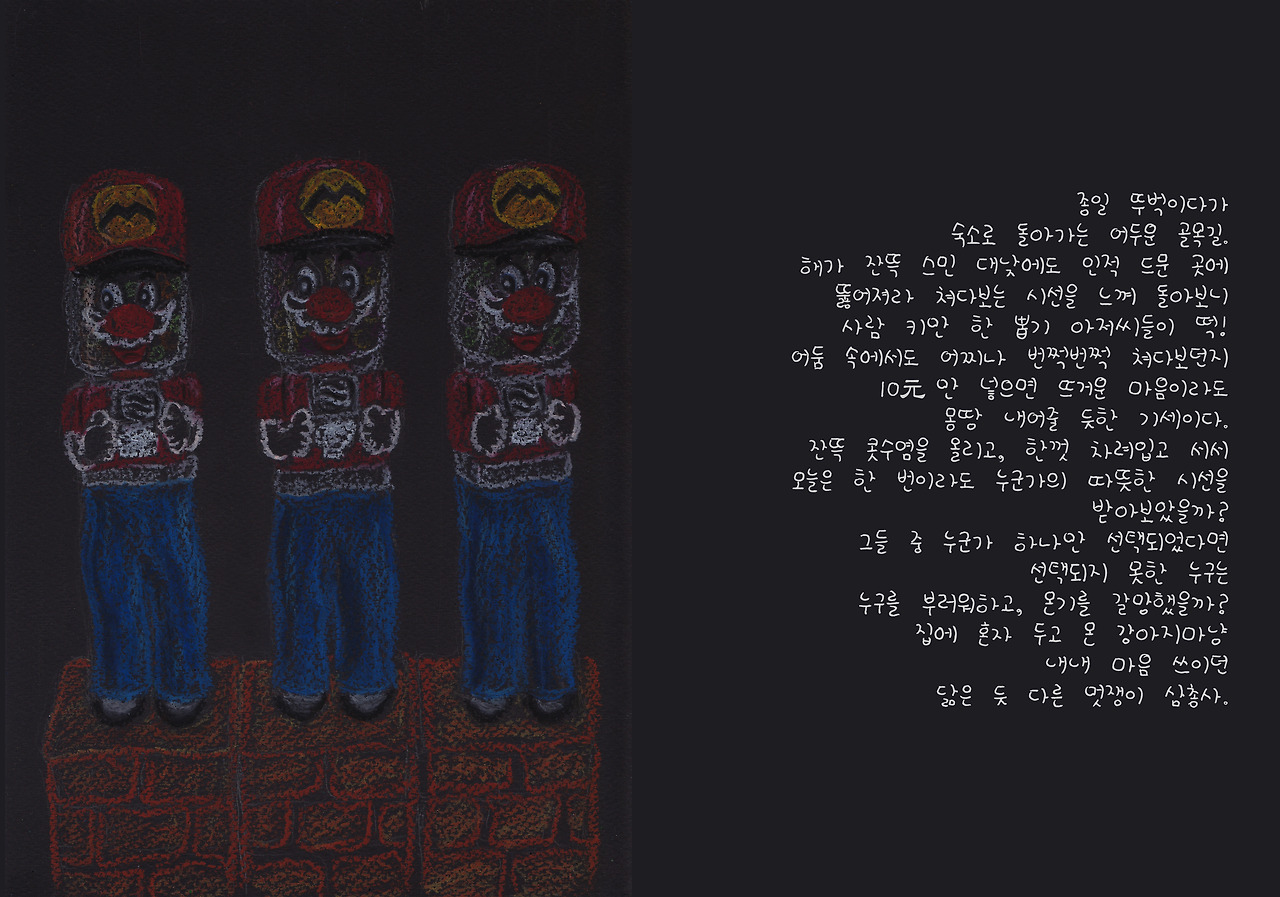 종일 뚜벅이다가
숙소로 돌아가는 어두운 골목길.
해가 잔뜩 스민 대낮에도 인적 드문 곳에
뚫어져라 쳐다보는 시선을 느껴 돌아보니
사람 키만 한 뽑기 아저씨들이 떡!
어둠 속에서도 어찌나 번쩍번쩍 쳐다보던지
10元 안 넣으면 뜨거운 마음이라도
몽땅 내어줄 듯한 기세이다.
잔뜩 콧수염을 올리고, 한껏 차려입고 서서
오늘은 한 번이라도 누군가의 따뜻한 시선을
받아보았을까?
그들 중 누군가 하나만 선택되었다면
선택되지 못한 누구는
누구를 부러워하고, 온기를 갈망했을까?
집에 혼자 두고 온 강아지마냥
내내 마음 쓰이던
닮은 듯 다른 멋쟁이 삼총사.